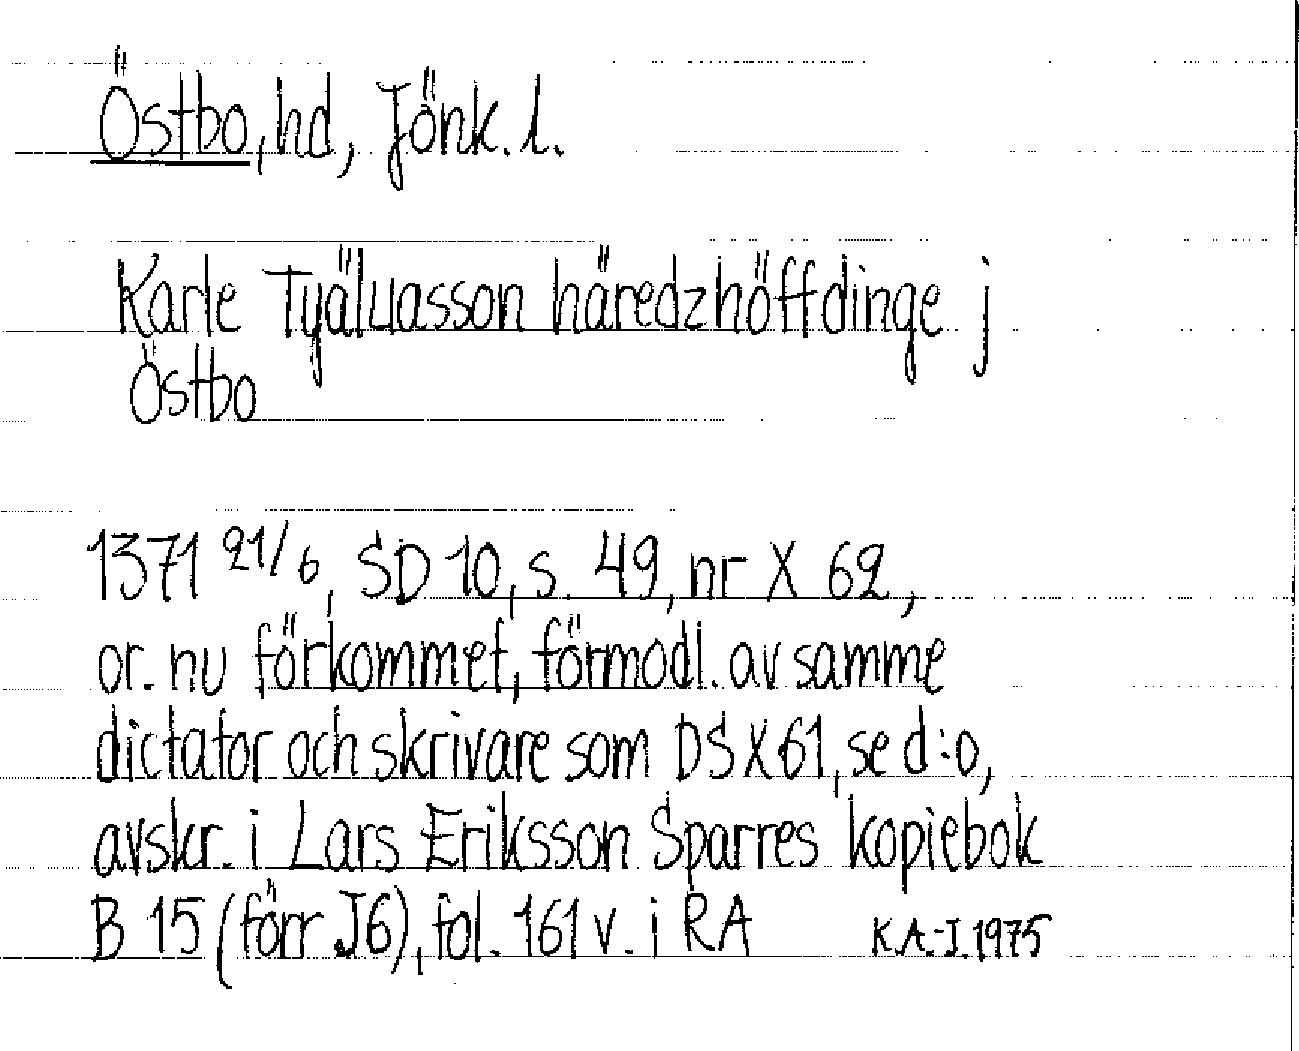 Östbo, hd, Jönk. l.
Karle Tyäluasson häredzhöffdinge j
Östbo
1371 21/6, SD 10, s. 49, nr X 62,
or. nu förkommet, förmodl. av samme
dictator och skrivare som DS X 61, se d:o,
avskr. i Lars Eriksson Sparres kopiebok
B 15 (förr J6), fol. 161 v. i RA K.A.-J. 1975